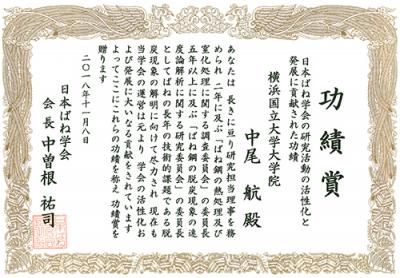 功績賞
日本ばね学会の研究活動の活性化と
発展に貢献された功績
横浜国立大学大学院
中尾 航 殿
あなたは 長きに亘り研究担当理事を務
められ 二年に及ぶ「ばね鋼の熱処理及び
窒化処理に関する調査委員会」の委員長
五年以上に及ぶ「ばね鋼の脱炭現象の速
度論解析に関する研究委員会」の委員長
としてばねの長年の技術的課題である脱
炭現象の解明に向けて尽力され 現在も
当学会の運営は元より 学会の活性化お
よび発展に大いなる貢献をされています
よってここにこれらの功績を称え 功績賞を
贈ります
二〇一八年十一月八日
日本ばね学会
会長 中曽根 祐司